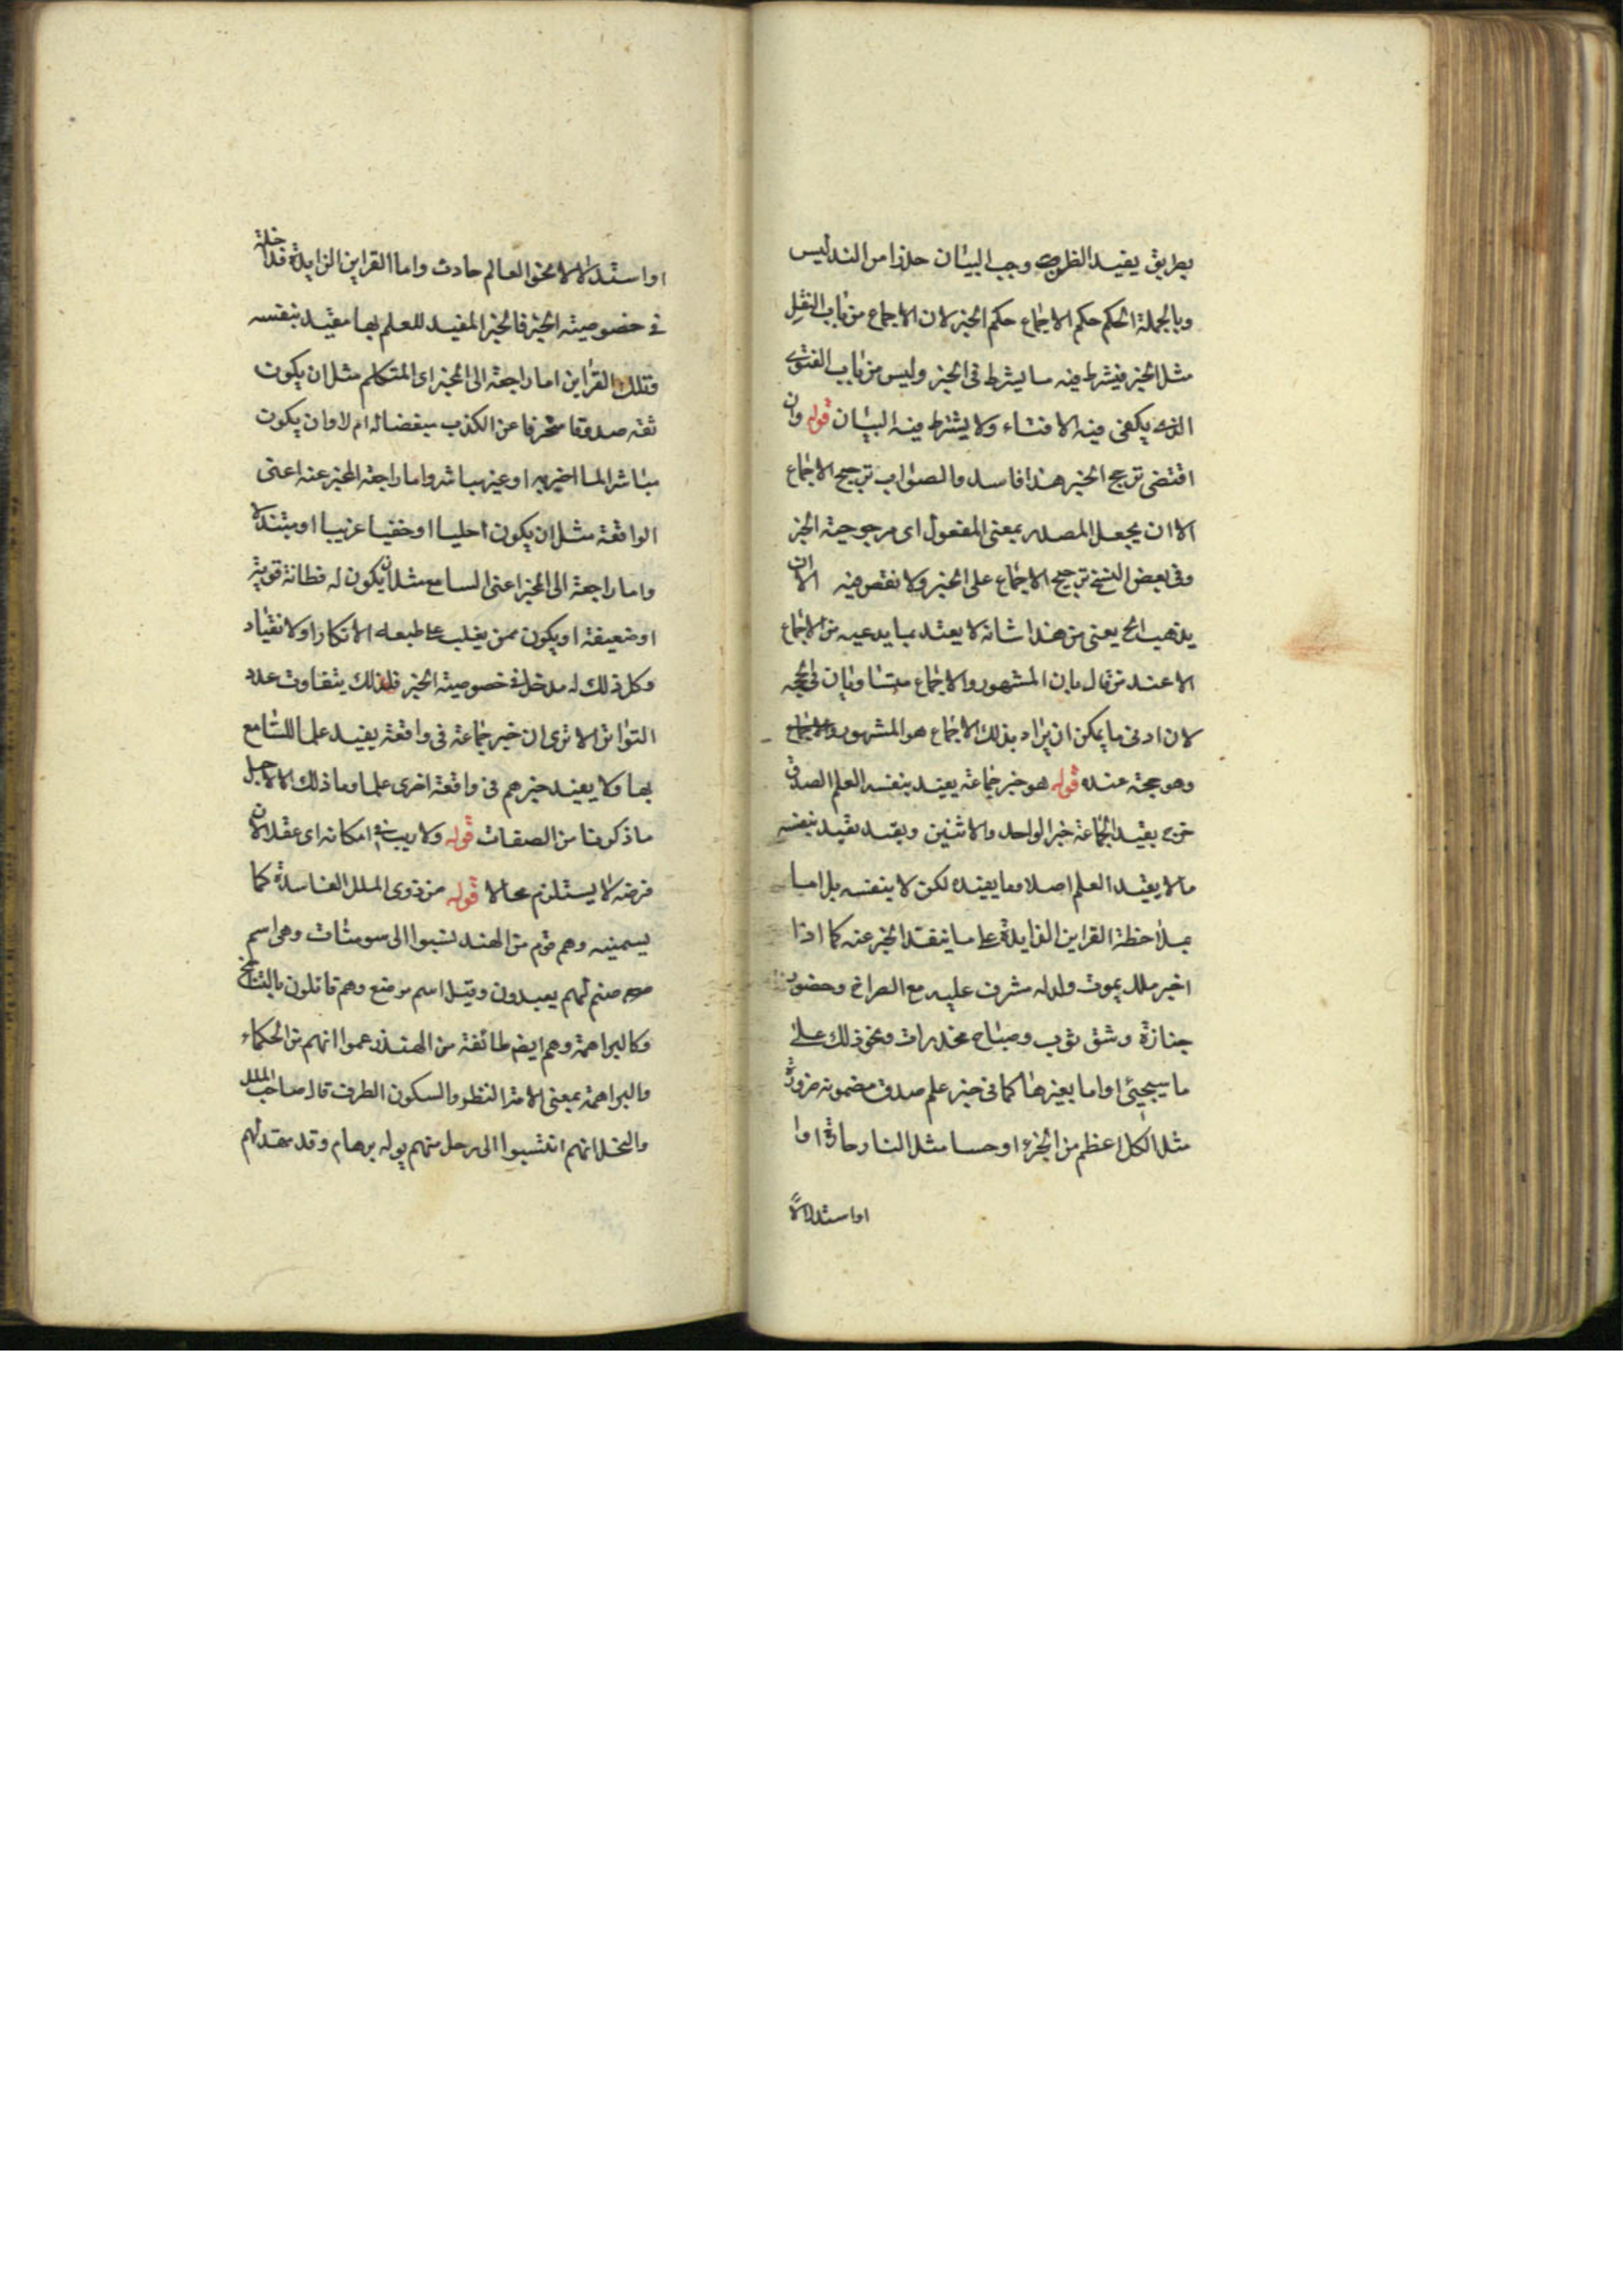 بطريق يفيد الظن وجب البيان حذرا من التدليس
وبالجملة الحكم حكم الاجماع حكم الخبر لان الاجماع من باب النقل
مثل الخبر فيشرط فيه ما يشرط في الخبر وليس من باب الفتوى
الذي يكفي فيه الافتاء ولا يشترط فيه البيان قوله وان
اقتضى ترجيح الخبر هذا فاسد والصواب ترجيح الاجماع
الا ان يجعل المصدر بمعنى المفعول اى مرجوحية الخبر
وفي بعض النسخ ترجيح الاجماع على الخبر ولا نقص فيه الا ان
يذهب الخ يعني من هذا شانه لا يعتد بما يدعيه من الاجماع
الا عند من قال بان المشهور والاجماع متساويان في الحجية
لان ادنى ما يمكن ان يراد بذلك الاجماع هو المشهور والاجماع
وهو حجة عنده قوله هو خبر جماعة يفيد بنفسه العلم الصدق
خرج بقيد الجماعة خبر الواحد والاثنين وبقيد يفيد بنفسه
ما لا يفيد العلم اصلا وما يفيده لكن لا بنفسه بل اما
بملاحظة القراين الزايدة على ما ينفك الخبر عنه كما اذا
اخبر ملك بموت ولد له مشرف عليه مع الصراخ وحضور
جنازة وشق ثوب وصياح مخدرات ونحو ذلك على
ما سيجيئ او اما بغيرها كما في خبر علم صدق مضمونه ضرورة
مثل الكل اعظم من الجزء او حسا مثل النار حارة او
او استدلالاً
او استدلالا نحو العالم حادث واما القراين الزايدة فداخلة
في خصوصية الخبر فالخبر المفيد للعلم بها مفيد بنفسه
وتلك القراين اما راجعة الى المخبر اى المتكلم مثل ان يكون
ثقة صدوقا متحرفا عن الكذب ام لا وان يكون
مباشرا لما اخبر به او غير مباشر واما راجعة المخبر عنه اعنى
الواقعة مثل ان يكون جليا او خفيا غريبا او مبتذلا
واما راجعة الى المخبر اعنى السامع مثل ان يكون له فطانة قوية
او ضعيفة او يكون ممن يغلب على طبعه الانكار او الانقياد
وكل ذلك له مدخل في خصوصية الخبر فلذلك يتفاوت عدد
التواتر الا ترى ان خبر جماعة في واقعة يفيد علما للسامع
بها ولا يفيد خبرهم في واقعة اخرى علما وما ذلك الا لاجل
ما ذكرنا من الصفات قوله ولا ريب في امكانه اى عقلا لان
فرضه لا يستلزم محالا قوله من ذوى الملل الفاسدة كما
يسمنيه وهم قوم من الهند نسبوا الى سومنات وهى اسم
صنم لهم يعبدون وقيل اسم موضع وهم قائلون بالتناسخ
وكالبراهمة وهم ايضا طائفة من الهند زعموا انهم من الحكماء
والبراهمة بمعنى الامة النظر والسكون الطرف قال صاحب الملل
والنحل انهم انتسبوا الى رجل منهم يوله برهام وقد مهد لهم